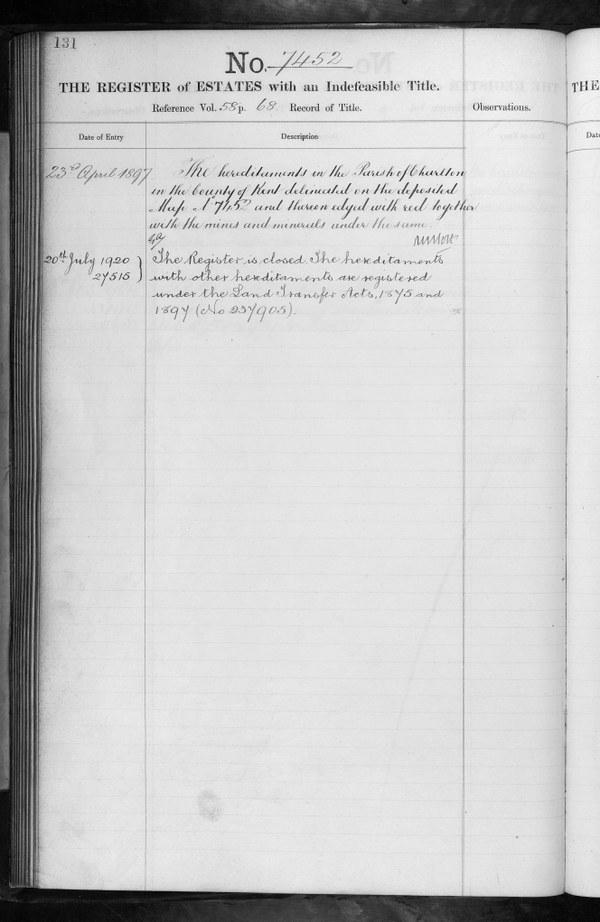 131
No. 7452
THE REGISTER of ESTATES with an Indefeasible Title.
Reference Vol. 58 p. 68 Record of Title.
Observations.
Date of Entry
Description
23rd April 1897
The hereditaments in the Parish of Charlton
in the County of Kent delineated on the deposited
Map No 7452 and thereon edged with red together
with the mines and minerals under the same.
20th July 1920
27515
The Register is closed. The hereditaments
with other hereditaments are registered
under the Land Transfer Acts, 1875 and
1897 (No 237905).
THE
Date